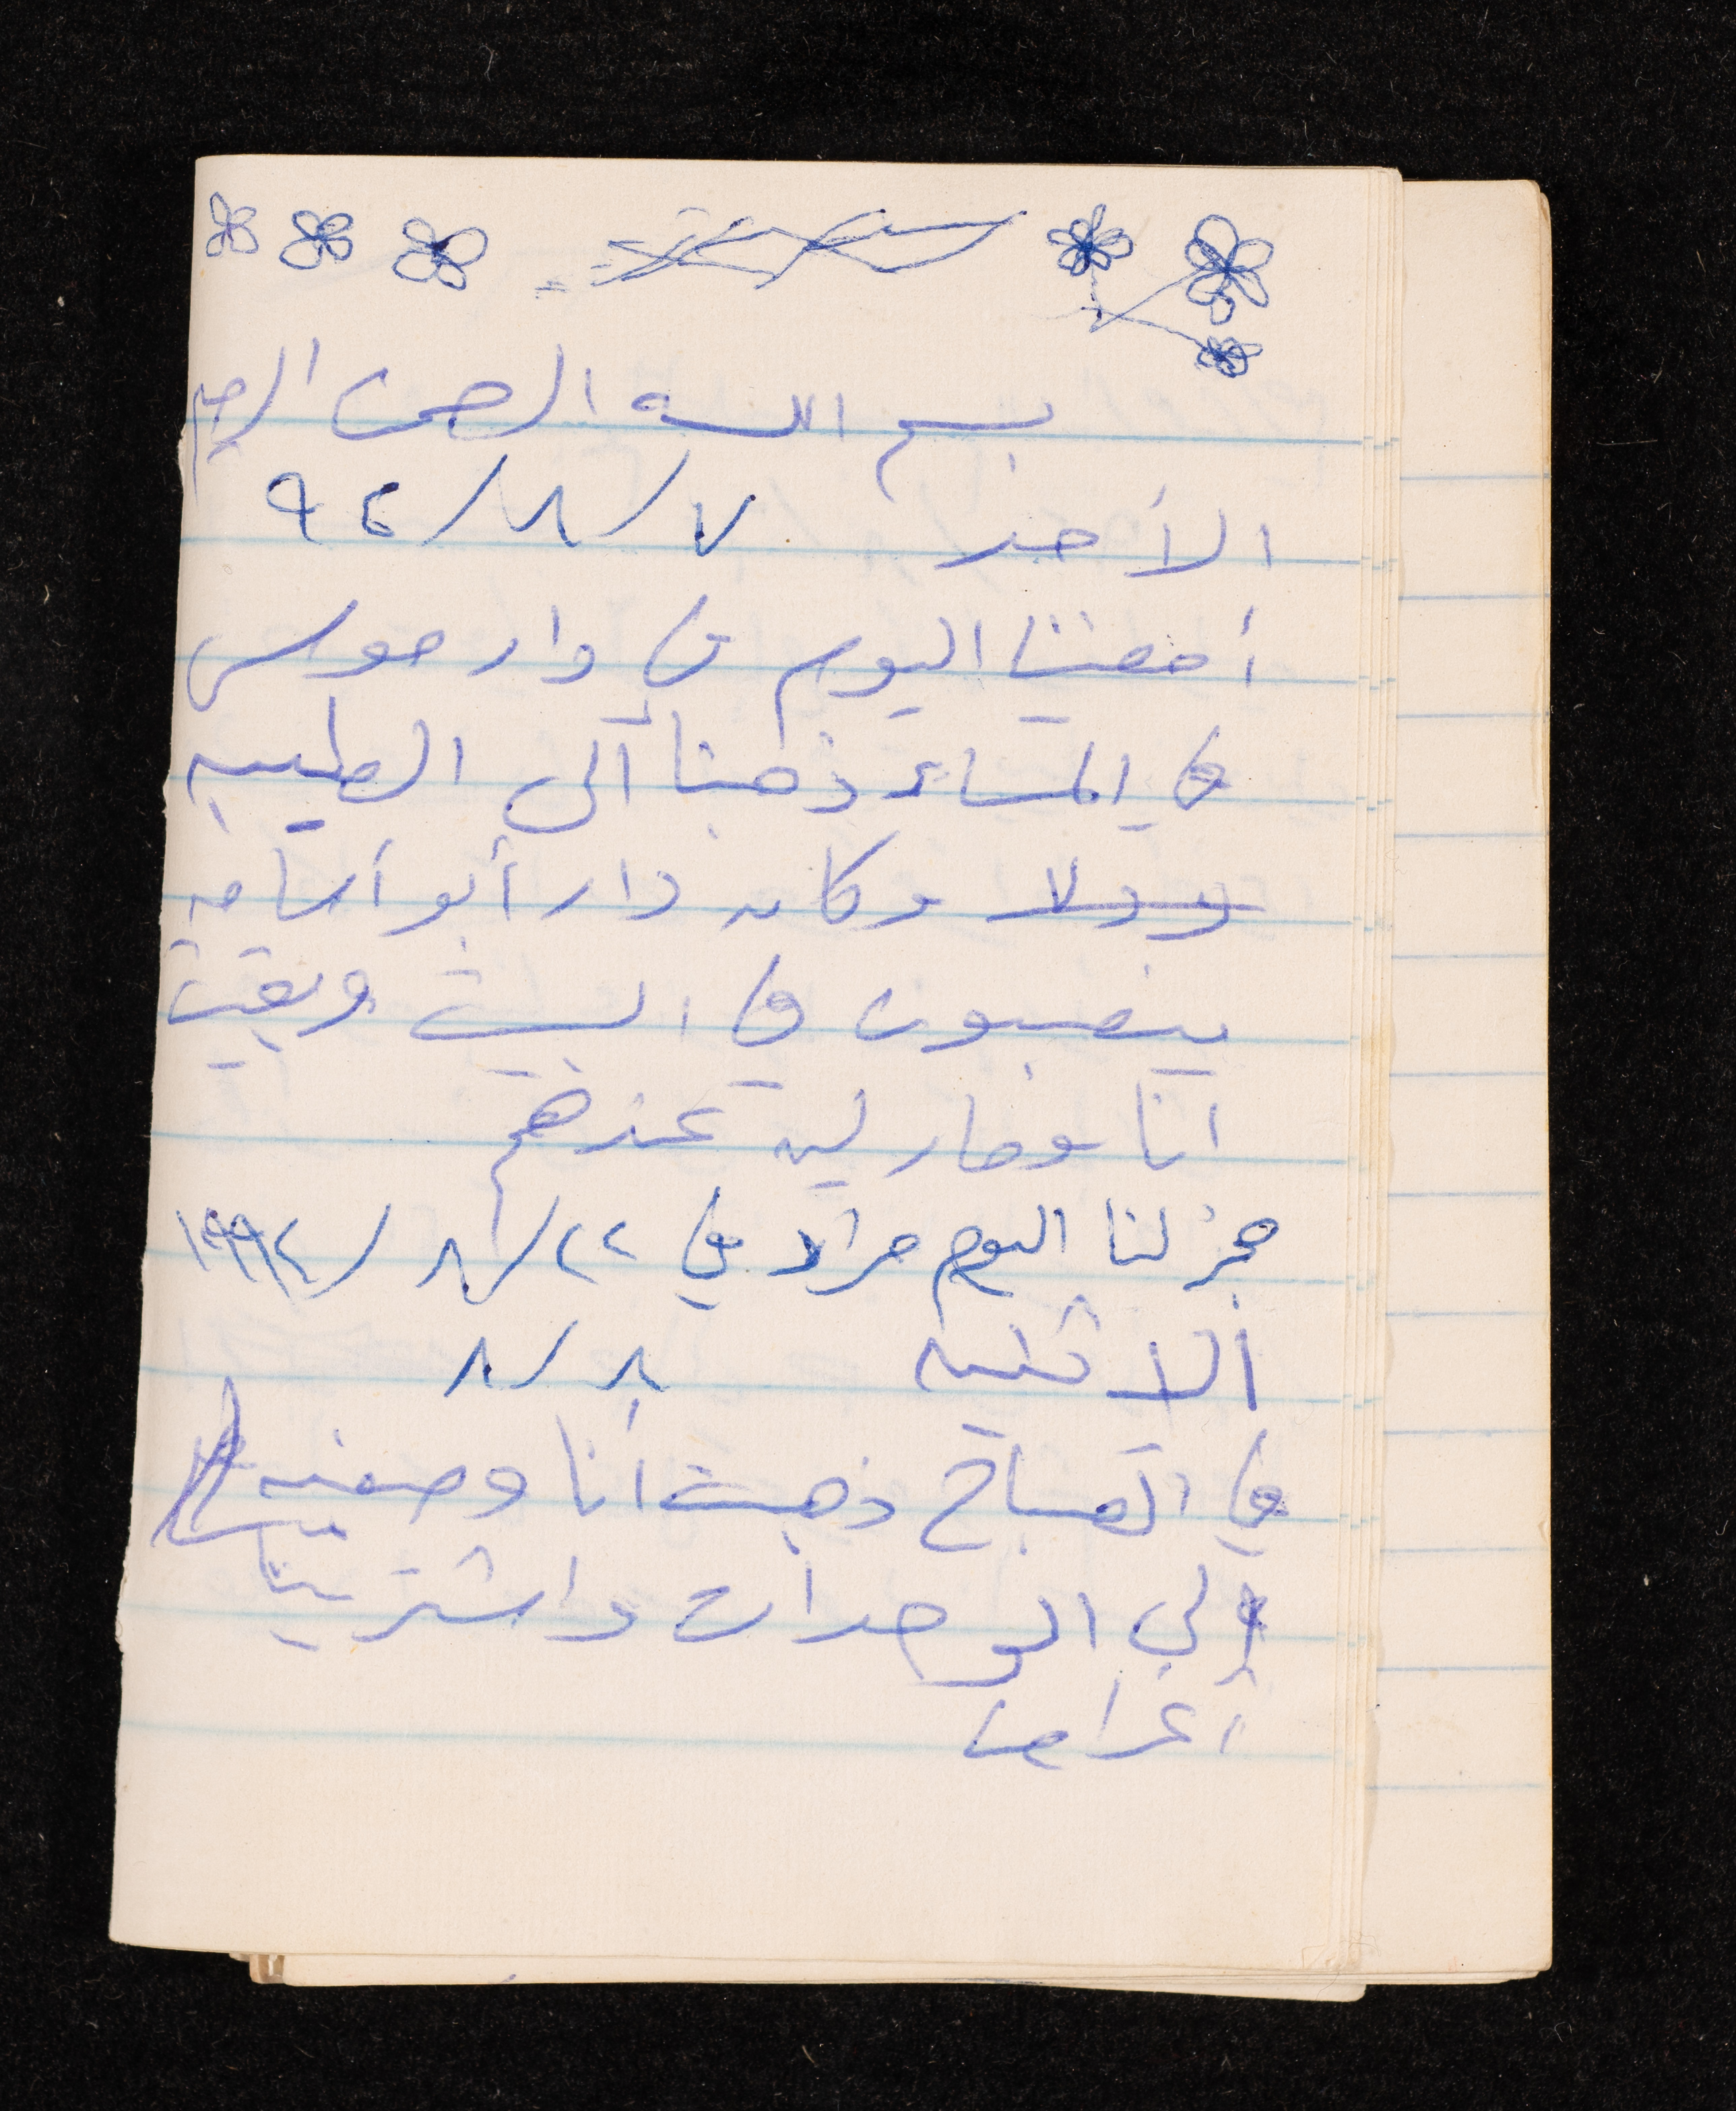 بسم الله الرحمن الرحيم
الأحد ٧/٨/٩٤
أمضينا اليوم في دار موسى
في المساء ذهبنا ألى الطيبه
وكان دار أبو أسامة
في البيت وبقيت
انا ومارلين عندهم
حجز لنا اليوم مراد في ٢٢/٨/١٩٩٤
ألاثنين ٨/٨
في الصباح ذهبت أنا وصفيه
إلى الوحدات واشترينا
أغراضا